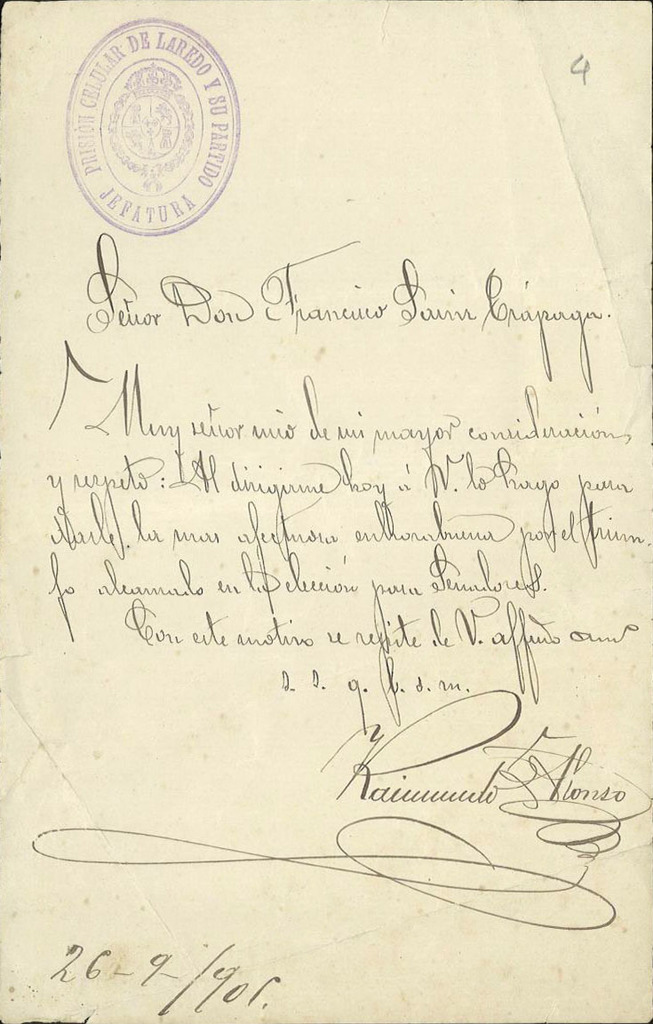 PRISIÓN CELULAR DE LAREDO Y SU PARTIDO
JEFATURA
4
Señor Don Francisco Sainz Trápaga.
Muy señor mio de mi mayor consideración
y respeto: Al dirigirme hoy á V. lo hago para
darle la mas afectuosa enhorabuena por el triun-
fo alcanzado en la elección para Senadores.
Con este motivo se repite de V. affmo am
s. s. q. b. s. m.
Raimundo Alonso
26-9-/905.